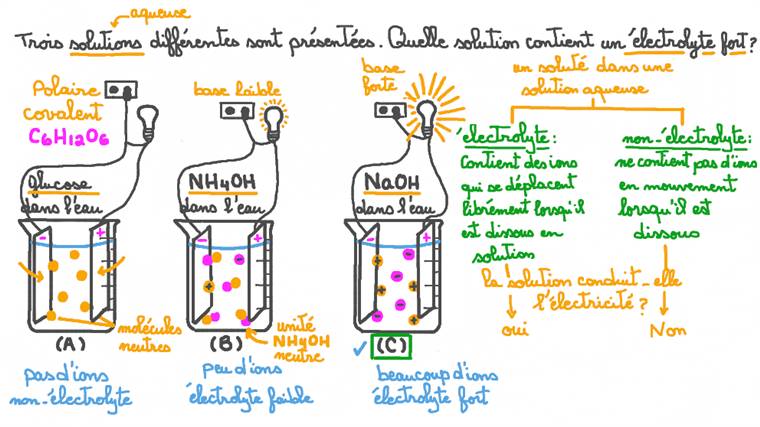 aqueuse
Trois solutions différentes sont présentées. Quelle solution contient un électrolyte fort?
un soluté dans une
solution aqueuse
Polaire
covalent
C6H12O6
base faible
base
forte
glucose
dans l'eau
NH4OH
dans l'eau
NaOH
dans l'eau
électrolyte:
Contient des ions
qui se déplacent
librement lorsqu'il
est dissous en
solution
non-électrolyte:
ne contient pas d'ions
en mouvement
lorsqu'il est
dissous
la solution conduit-elle
l'électricité?
oui
Non
- +
- +
- +
molécules
neutres
unité
NH4OH
neutre
(A)
(B)
(C)
pas d'ions
non-électrolyte
peu d'ions
électrolyte faible
beaucoup d'ions
électrolyte fort